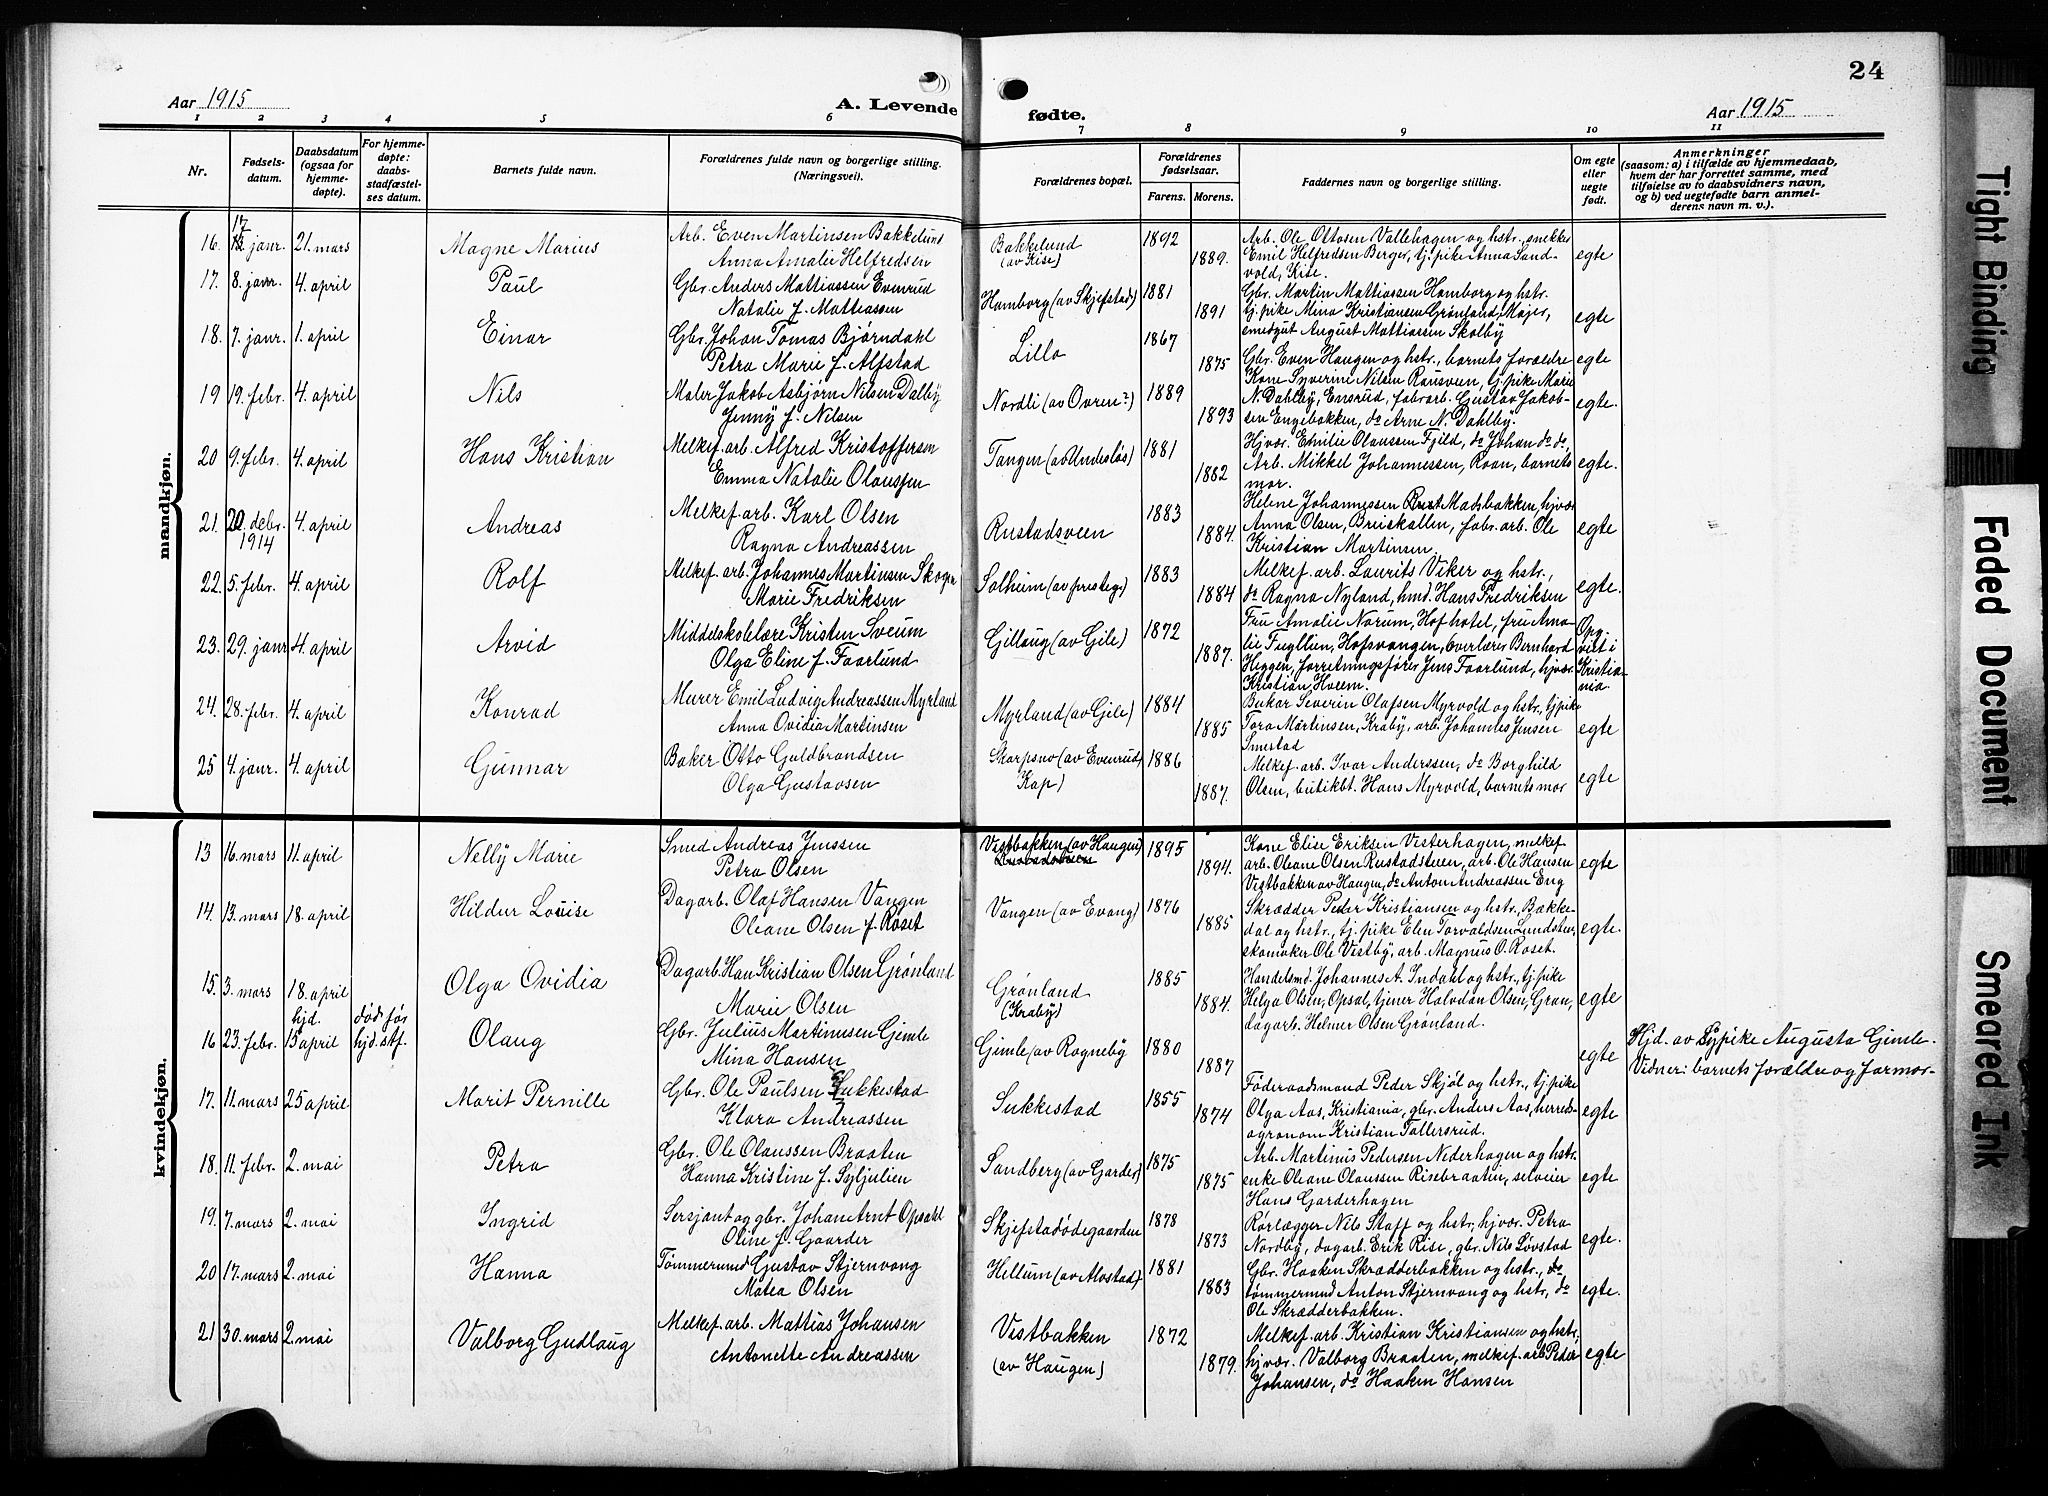 24
Aar 1915
A. Levende fødte.
Aar 1915
1 2 3 4 5 6 7 8 9 10 11
Nr.
Fødsels-
datum.
Daabsdatum
(ogsaa for
hjemme-
døpte).
For hjemme-
døpte:
daabs-
stadfæstel-
ses datum.
Barnets fulde navn.
Forældrenes fulde navn og borgerlige stilling.
(Næringsvei).
Forældrenes bopæl.
Forældrenes
fødselsaar.
Farens. Morens.
Faddernes navn og borgerlige stilling.
Om egte
eller
uegte
født.
Anmerkninger
(saasom: a) i tilfælde av hjemmedaab,
hvem der har forrettet samme, med
tilføielse av to daabsvidners navn,
og b) ved uegtefødte barn anmel-
derens navn m. v.).
mandkjøn.
16. 17 janr. 21. mars
Magne Marius
Arb. Even Martinsen Bakkelund
Anna Amalie Helfredsen
Bakkelund
(av Kise)
1892
1889.
Arb. Ole Ottosen Vallehagen og hstr., snekker
Emil Helfredsen Berger, tj.pike Anna Sand-
vold, Kise.
egte
17. 8. janr. 4. april
Paul
Gbr. Anders Mattiassen Evenrud
Natalie f. Mattiassen
Hamborg (av Skjefstad)
1881
1891
Gbr. Martin Mattiassen Hamborg og hstr.
tj.pike Mina Kristiansen Grønland, Majer,
smedgut August Mattiassen Skolby
egte
18. 7. janr. 1. april
Einar
Gbr. Johan Tomas Bjørndahl
Petra Marie f. Alfstad
Lillo
1867
1875
Gbr. Even Haugen og hstr., barnets forældre
egte
19 19. febr. 4. april
Nils
Maler Jakob Asbjørn Nilsen Dalby
Jenny f. Nilsen
Nordli (av Ovren?)
1889
1893
Kone Syverine Nilsen Rausveen, tj.pike Marie
N. Dahlby, Ensrud, fabr.arb. Gustav Jakob-
sen Engebakken, do Arne N. Dahlby.
egte.
20 9. febr. 4. april
Hans Kristian
Melkef. arb. Alfred Kristoffersen
Emma Natalie Olaussen
Tangen (av Undesløs)
1881
1882
Hjvær. Emilie Olaussen Fjeld, do Johan do do,
Arb. Mikkel Johannessen, Roan, barnets
mor.
egte.
21. 20. debr. 1914 4. april
Andreas
Melkef. arb. Karl Olsen
Ragna Andreassen
Rustadsveen
1883
1884.
Helene Johannessen Madsbakken, hjvær
Anna Olsen, Bruskallen, fabr. arb. Ole
Kristian Martinsen.
egte
22. 5. febr. 4. april
Rolf
Melkef. arb. Johannes Martinsen Skogen
Marie Fredriksen
Solheim (av prestegd)
1883
1884
Melkef. arb. Laurits Viker og hstr.,
do Ragna Nyland, hmd. Hans Fredriksen
egte.
23. 29. janr 4. april
Arvid
Middelskolelære Kristen Sveum
Olga Eline f. Faarlund
Gillaug (av Gile)
1872
1887.
Fru Amalie Norum, Hof hotel, fru Ama-
lie Fugllien, Hofsvangen, overlærer Bernhard
Heggen, forretningsfører Jens Faarlund, hjvær.
Kristian Hveem.
Opg
viet i
Kristia-
nia.
24. 28. febr. 4. april
Konrad
Murer Emil Ludvig Andreassen Myrland
Anna Ovidia Martinsen
Myrland (av Gile)
1884
1885
Baker Severin Olafsen Myrvold og hstr., tj.pike
Tora Martinsen, Kraby, arb. Johannes Jensen
Smestad
egte
25 4. janr. 4. april
Gunnar
Baker Otto Guldbrandsen
Olga Gustavsen
Skarpsno (av Evenrud)
Kap)
1886
1887.
Melkef. arb. Ivar Anderssen, do Borghild
Olsen, butikbt. Hans Myrvold, barnets mor
egte
kvindekjøn.
13 16. mars 11. april
Nelly Marie
Smed Andreas Jenssen
Petra Olsen
Vestbakken (av Haugen)
Rustadsveen
1895
1894.
Kone Elise Eriksen Vesterhagen, melkef
arb. Oleane Olsen Rustadsveen, arb. Ole Hansen
Vestbakken av Haugen, do Anton Andreassen Eng
egte
14. 13. mars 18. april
Hildur Louise
Dagarb. Olaf Hansen Vangen
Oleane Olsen f. Røset
Vangen (av Evang)
1876
1885
Skrædder Peder Kristiansen og hstr., Bække-
dal og hstr., tj.pike Elen Torvaldsen Lundsten,
skomaker Ole Vestby, arb. Magnus O. Roset.
egte.
15. 3. mars 18. april
Olga Ovidia
Dagarb. Han Kristian Olsen Grønland
Marie Olsen
Grønland
(Kraby)
1885
1884.
Handelsmd. Johannes A. Indahl og hstr., tj.pike
Helga Olsen, Opsal, tjener Halvdan Olsen, Gran,
dagarb. Helmer Olsen Grønland.
egte
16 23. febr. hjd. 15 april død før
hjd. stf.
Olaug
Gbr. Julius Martinusen Gjemle
Mina Hansen
Gimle (av Rogneby
1880
1887
egte
Hjd. av sypike Augusta Gimle.
Vidner: barnets forældre og farmor-
17. 11. mars 25 april
Marit Pernille
Gbr. Ole Paulsen Sukkestad
Klara Andreassen
Sukkestad
1855
1874
Föderaadsmand Peder Skjøl og hstr., tj.pike
Olga Aas, Kristiania, gbr. Anders Aas, herreds-
agronom Kristian Tallersrud.
egte
18. 11. febr. 2. mai
Petra
Gbr. Ole Olaussen Braaten
Hanna Kristine f. Syljulien
Sandberg (av Garder)
1875
1875
Arb. Martinus Pedersen Nederhagen og hstr.
enke Oleane Olaussen Risebraaten, selveier
Hans Garderhagen
egte
19. 7. mars 2. mai
Ingrid
Sersjant og gbr. Johan Arnt Opsahl
Oline f. Gaarder
Skjefstadødegaarden
1878
1873
Rørlægger Nils Staff og hstr., hjvær. Petra
Nordby, dagarb. Erik Rise, gbr. Nils Løvstad
egte.
20 17. mars 2. mai
Hanna
Tømmermand Gustav Stjernvang
Matea Olsen
Hellum (av Alvstad)
1881
1883
Gbr. Haaken Skrædderbakken og hstr., do
tømmermnd Anton Stjernvang og hstr, do
Ole Skrædderbakken.
egte.
21 30. mars 2. mai
Valborg Gudlaug
Melkef. arb. Mattias Johansen
Antonette Andreassen
Vestbakken
(av Haugen)
1872
1879.
Melkef. arb. Kristian Kristiansen og hstr,
hjvær. Valborg Braaten, melkef. arb Peder
Johansen, do Haaken Hansen
egte
Tight Binding
Faded Document
Smeared Ink